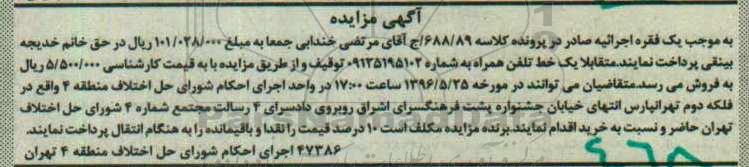 آگهی مزایده
به موجب یک فقره اجرائیه صادر در پرونده کلاسه ۶۸۸/۸۹/ج آقای مرتضی خندابی جمعا به مبلغ ۱۰۱/۰۲۸/۰۰۰ ریال در حق خانم خدیجه
بینقی پرداخت نمایند.متقابلا یک خط تلفن همراه به شماره ۰۹۱۲۵۱۹۵۱۰۲ توقیف و از طریق مزایده با به قیمت کارشناسی ۵/۵۰۰/۰۰۰ ریال
به فروش می رسد.متقاضیان می توانند در مورخه ۱۳۹۶/۵/۲۵ ساعت ۱۷:۰۰ در واحد اجرای احکام شورای حل اختلاف منطقه ۴ واقع در
فلکه دوم تهرانپارس انتهای خیابان جشنواره پشت فرهنگسرای اشراق روبروی دادسرای ۴ رسالت مجتمع شماره ۴ شورای حل اختلاف
تهران حاضر و نسبت به خرید اقدام نمایند.برنده مزایده مکلف است ۱۰ درصد قیمت را نقدا و باقیمانده را به هنگام انتقال پرداخت نمایند.
۴۷۳۸۶ اجرای احکام شورای حل اختلاف منطقه ۴ تهران